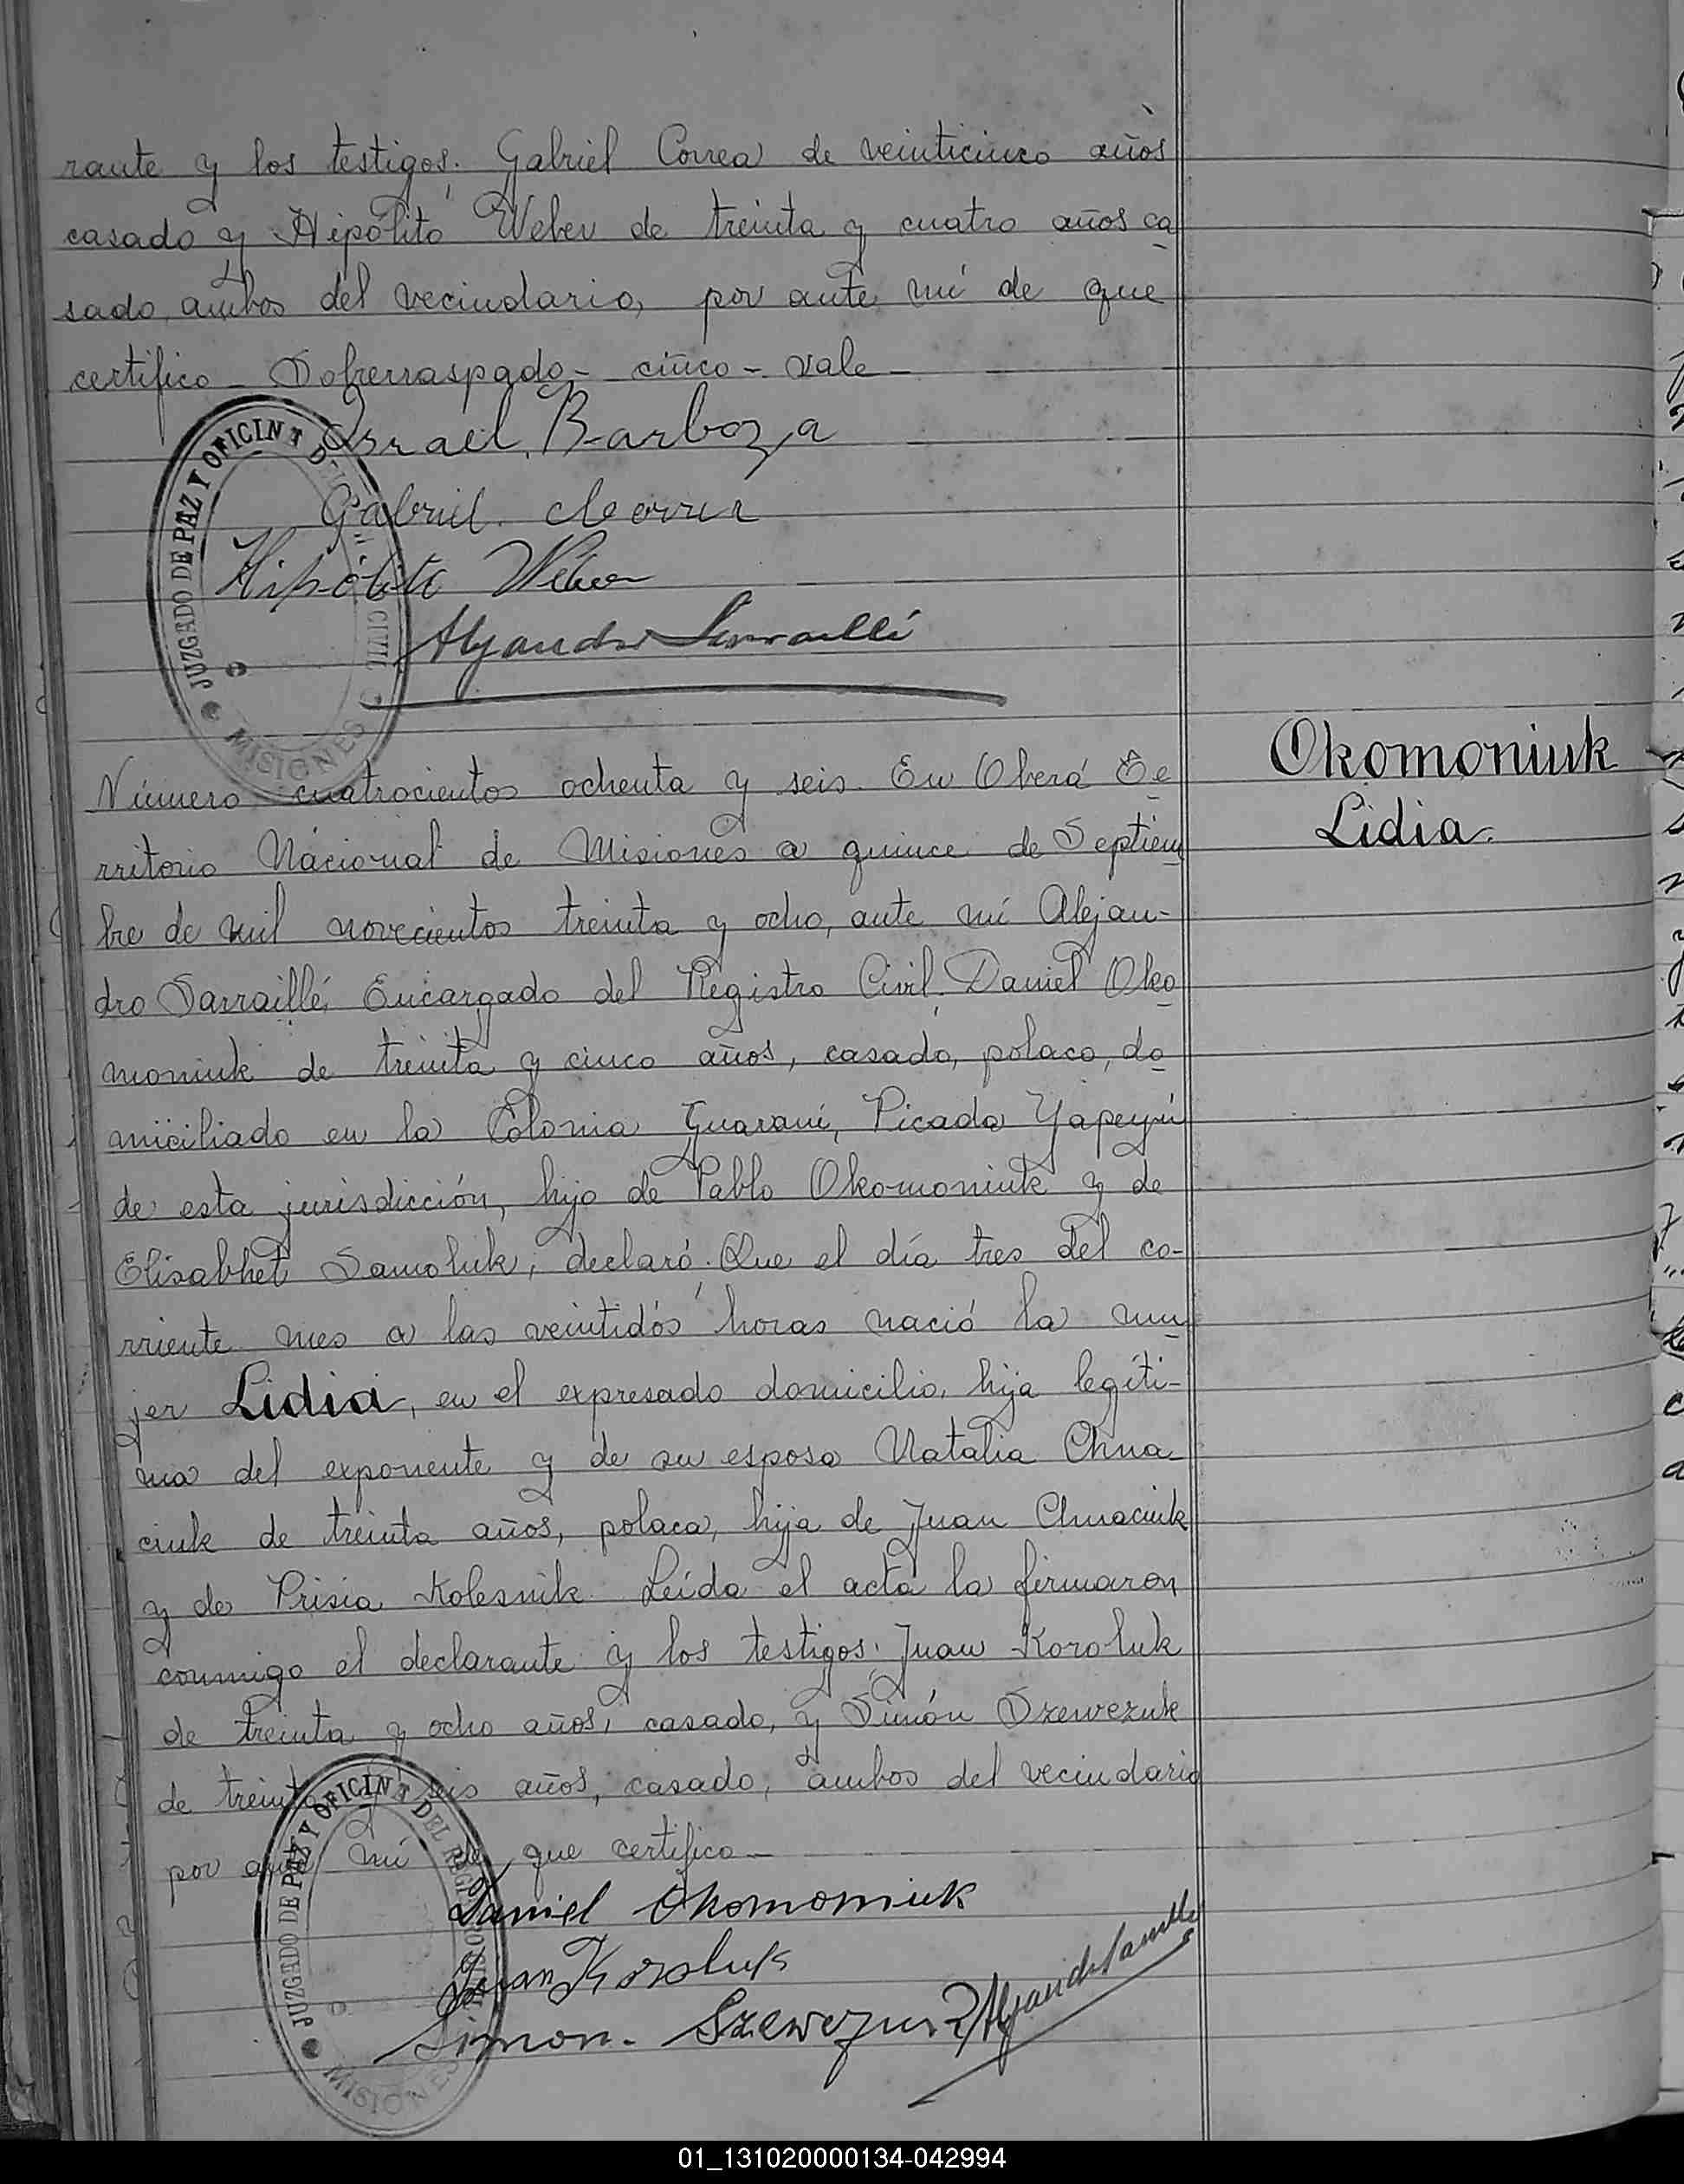 rante y los testigos: Gabriel Correa de veinticinco años
casado y Hipólito Weber de treinta y cuatro años ca
sado, ambos del vecindario, por ante mí de que
certifico - Sobrerraspado - cinco - vale -
Israel Barboza
Gabriel Correa
Hipólito Weber
Alejandro Sarraillé
JUZGADO DE PAZ Y OFICINA D CIVIL
MISIONES
Okomoniuk
Lidia.
Número cuatrocientos ochenta y seis. En Oberá Te
rritorio Nacional de Misiones a quince de Septiem
bre de mil novecientos treinta y ocho, ante mí Alejan-
dro Sarraillé, Encargado del Registro Civil. Daniel Oko
moniuk de treinta y cinco años, casado, polaco, do
miciliado en la Colonia Guaraní, Picada Yapeyú
de esta jurisdicción, hijo de Pablo Okomoniuk y de
Elisabhet Samoluk; declaró: Que el día tres del co-
rriente mes a las veintidós horas nació la mu
jer Lidia, en el expresado domicilio, hija legíti-
ma del exponente y de su esposa Natalia Chma-
ciuk de treinta años, polaca, hija de Juan Chmaciuk
y de Prisia Kolesnik. Leída el acta la firmaron
conmigo el declarante y los testigos: Juan Koroluk
de treinta y ocho años, casado, y Simón Szewezuk
de treinta y seis años, casado, ambos del vecindario
por ante mí de que certifico -
Daniel Okomoniuk
Juan Koroluk
Simon. Szewezuk
Alejandro Sarraillé
JUZGADO DE PAZ Y OFICINA DEL REGISTRO
MISIONES
01_131020000134-042994